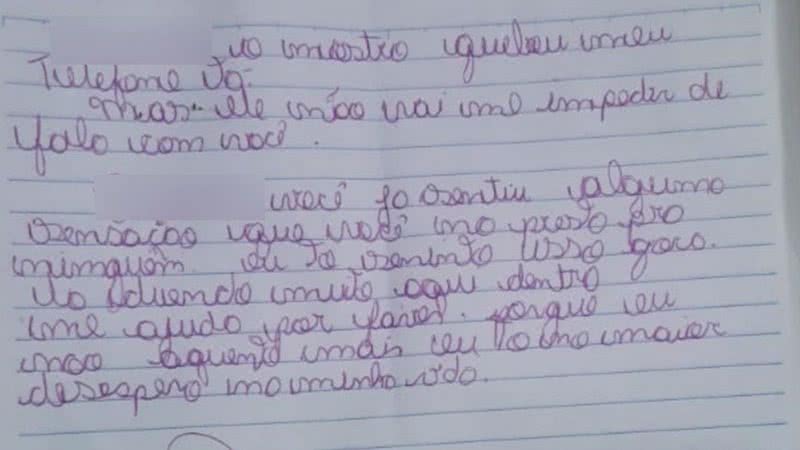 uo monstro quebeu meu
Telefone Já.
mas ele não vai me impedir de
falo com você.
você ja sentiu alguma
sensação que você não presta pro
ninguém. eu to sentindo isso agora.
doendo muito aqui dentro
me ajudo por favor. porque eu
não aguento mais eu to no maior
desespero na minha vida.